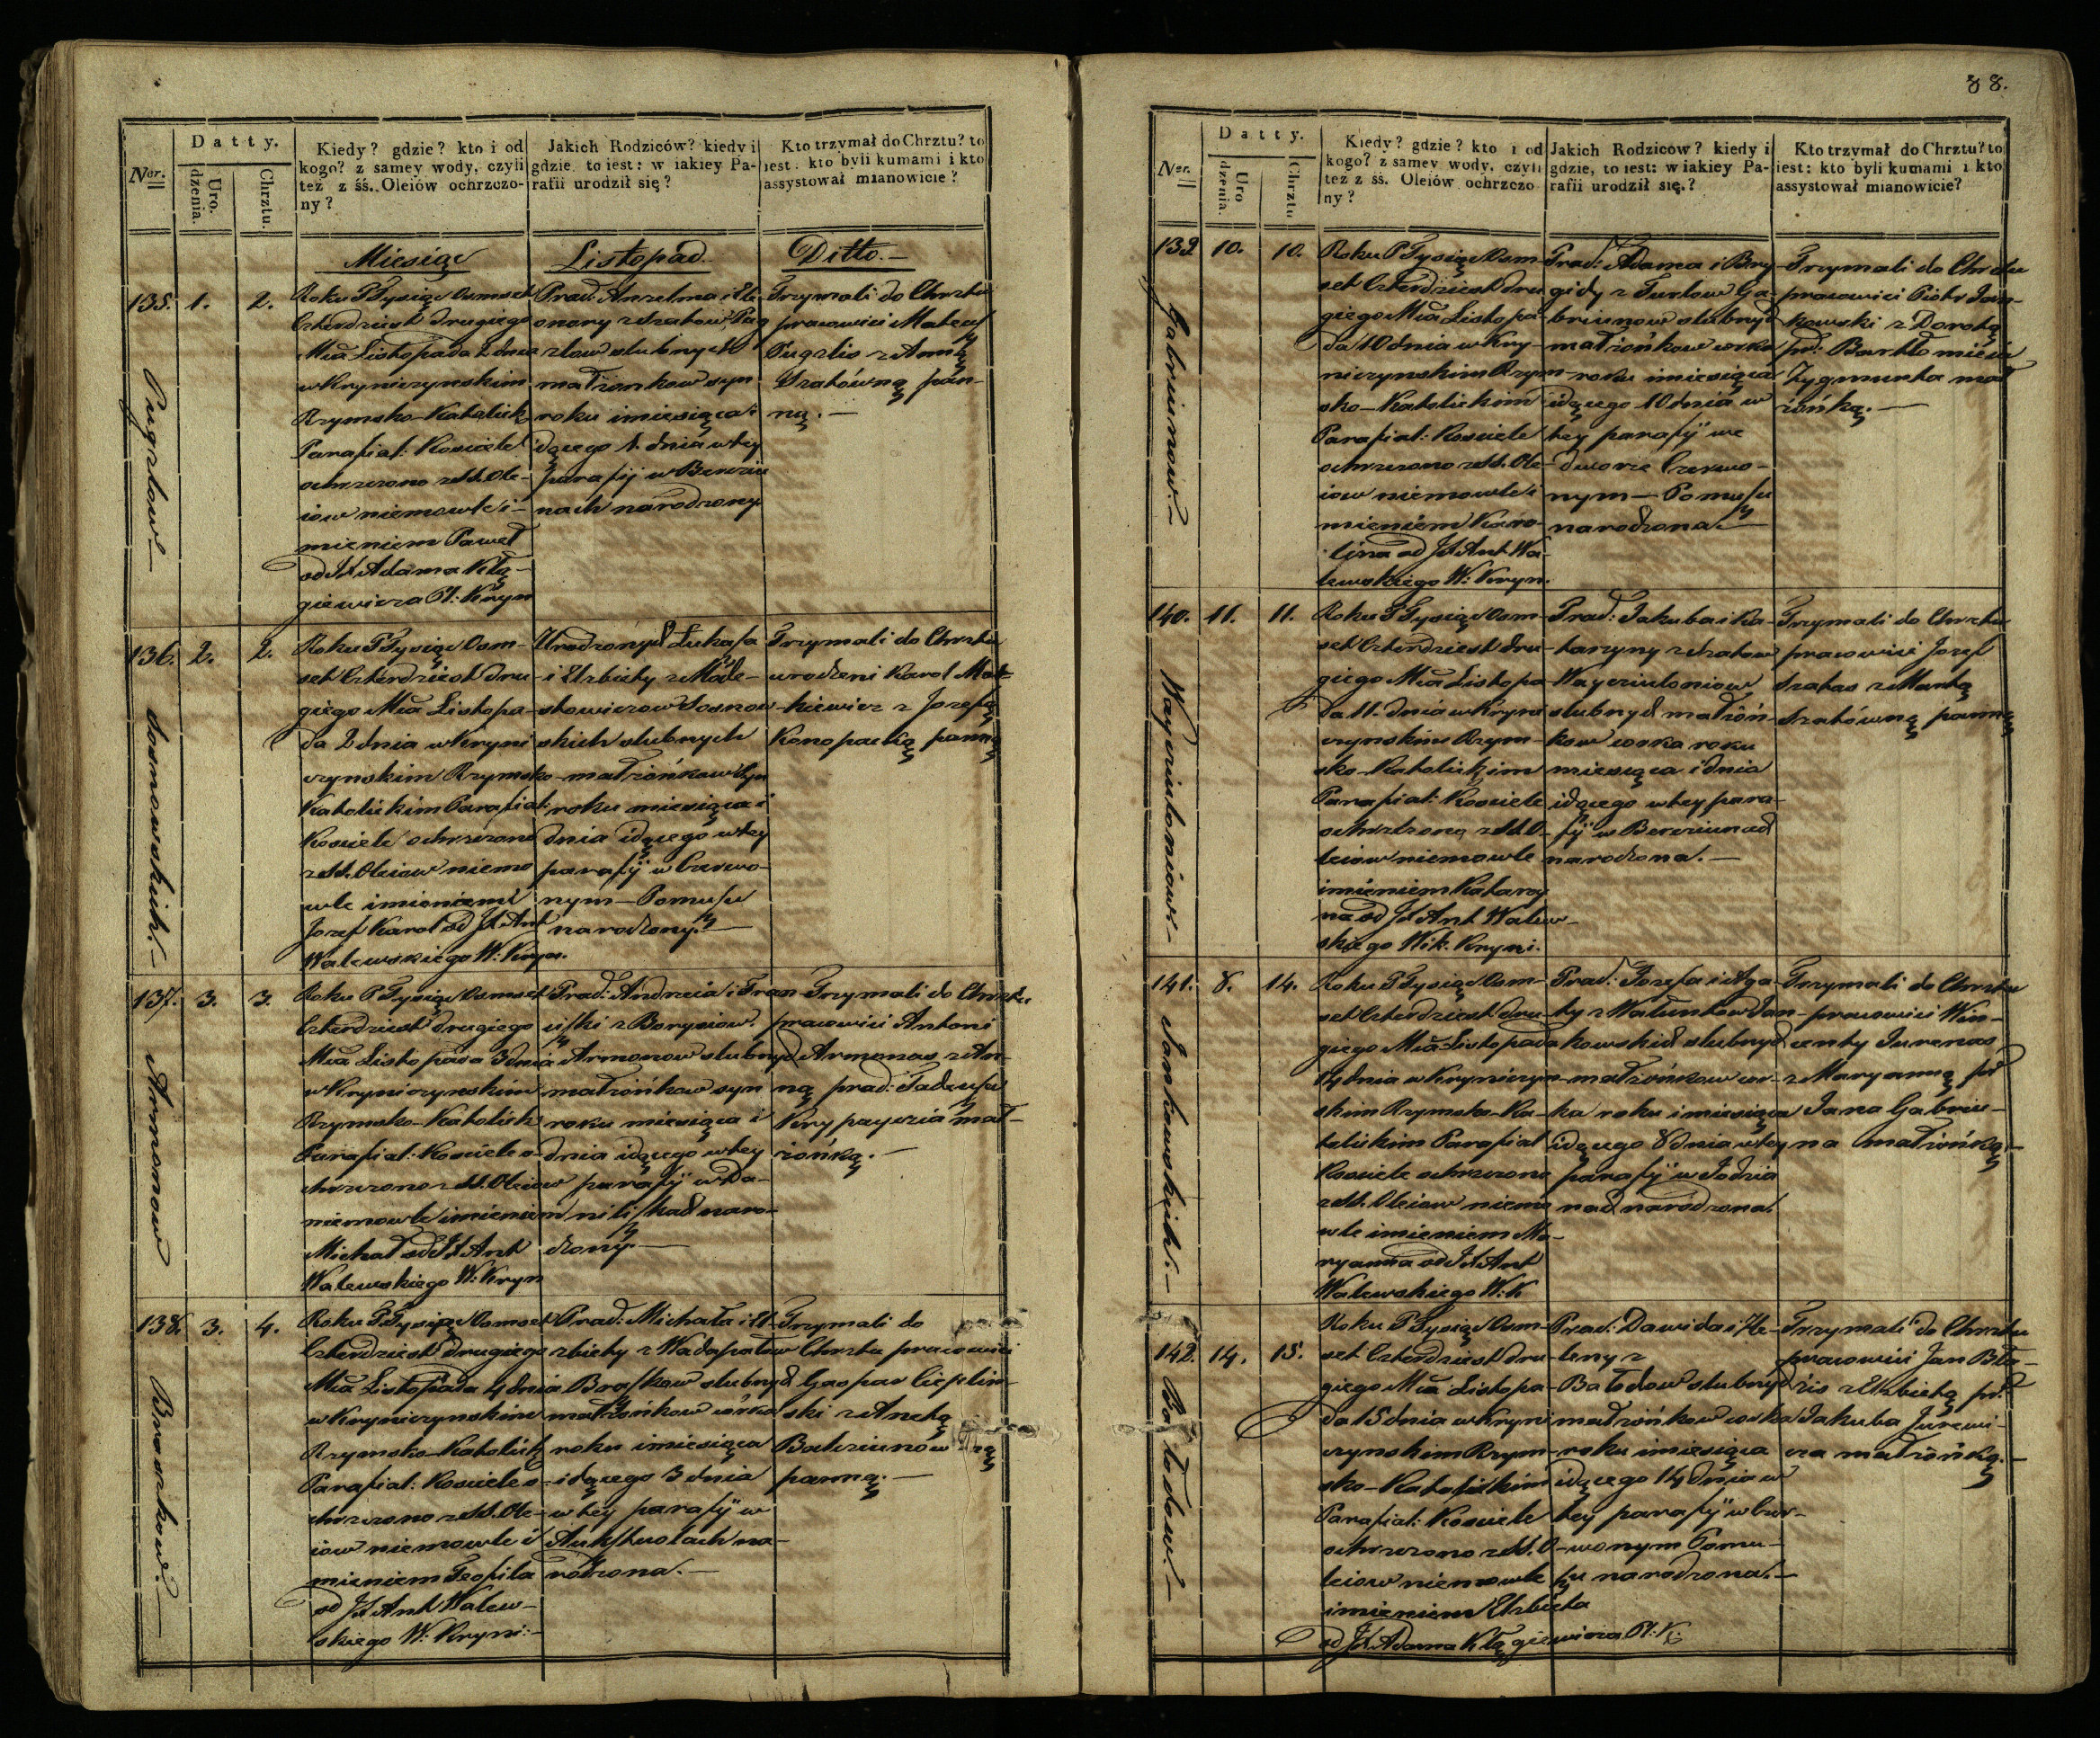 Ner.
Datty.
Uro.
dzenia.
Chrztu.
Kiedy? gdzie? kto i od
kogo? z samey wody, czyli
też z śś. Oleiów ochrzczo-
ny?
Jakich Rodziców? kiedy i
gdzie, to iest: w iakiey Pa-
rafii urodził się?
Kto trzymał do Chrztu? to
iest: kto byli kumami i kto
assystował mianowicie?
Miesiąc Listopad. Ditto.—
135. 1. 2.
Pugzlow
Roku P Tysiąc Osmset
Czterdziest drugiego
Mca Listopada 2 dnia
w Kryniczynskim
Rzymsko-Katolick
Parafial: Kosciele
ochrzczono z SS. Ole-
iow niemowle i-
mieniem Paweł
od JX Adama Kłą-
giewicza Pl: Kryn
Prad: Anzelma i Ele-
onory z Szatow Pug
zlow slubnych
małżonkow syn
roku i miesiąca i
dącego 1. dnia w tey
parafij w Berziu
nach narodzony
Trzymali do Chrztu
pracowici Mateusz
Pugzlis z Anną
Szatówną pan-
ną.—
136. 2. 2.
Sosnowskich.—
Roku P Tysiąc Osm-
set Czterdziest dru-
giego Mca Listopa-
da 2 dnia w Kryni
czynskim Rzymsko-
Katolickim Parafial:
Kosciele ochrzczono
z SS. Oleiow niemo
wle imieniem
Jozef Karol od JX Ant
Walewskiego W: Kryn.
Urodzonych Lukasza
i Elzbiety z Mode-
stowiczow Sosnow-
skich slubnych
małżonkow Syn
roku miesiąca i
dnia idącego w tey
parafij w Czerwo-
nym—Pomuszu
narodzony.—
Trzymali do Chrztu
urodzeni Karol Mac-
kiewicz z Jozefą
Konopacką panną
137. 3. 3.
Armonow
Roku P Tysiąc Osmset
Czterdziest drugiego
Mca Listopada 3 dnia
w Kryniczynskim
Rzymsko-Katolick
Parafial: Kosciele o-
chrzczono z SS. Oleiow
niemowle imieniem
Michał od JX Ant
Walewskiego W: Kryn
Prad: Andrzeia i Fran-
ciszki z Borysow.
Armonow slubnych
małżonkow syn
roku miesiąca i
dnia idącego w tey
parafij w Da-
niliszkach naro-
dzony.—
Trzymali do Chrztu
pracowici Antoni
Armonas z An-
ną prad: Tadeusza
Krypaycia mał-
żonką.—
138. 3. 4.
Braszkow.—
Roku P Tysiąc Osmset
Czterdziest drugiego
Mca Listopada 4 dnia
w Kryniczynskim
Rzymsko-Katolick
Parafial: Kosciele o-
chrzczono z SS. Ole-
iow niemowle i
mieniem Teofila
od JX Ant Walew-
skiego W: Kryni:
Prad: Michała i El-
zbiety z Wadapałow
Braszkow slubnych
małżonkow córka
roku i miesiąca
idącego 3 dnia
w tey parafij w
Auksztuolach na-
rodzona.—
Trzymali do
Chrztu pracowici
Gaspar Cieplin-
ski z Anetą
panną.—
88.
Ner.
Datty.
Uro
dzenia.
Chrztu
Kiedy? gdzie? kto i od
kogo? z samey wody, czyli
też z śś. Oleiów ochrzczo
ny?
Jakich Rodziców? kiedy i
gdzie, to iest: w iakiey Pa-
rafii urodził się.?
Kto trzymał do Chrztu? to
iest: kto byli kumami i kto
assystował mianowicie?
139. 10. 10.
Gabriunow.—
Roku P Tysiąc Osm-
set Czterdziest dru
giego Mca Listopa-
da 10 dnia w Kry-
niczynskim Rzym-
sko-Katolickim
Parafial: Kosciele
ochrzczono z SS. Ole-
iow niemowle i
mieniem Karo-
lina od JX Ant Wa-
lewskiego W: Kryn.
Prad: Adama i Bry-
gidy z Turlow Ga-
briunow slubnych
małżonkow corka
roku i miesiąca
idącego 10 dnia w
tey parafij we
dworze Czerwo-
nym—Pomuszu
narodzona.—
Trzymali do Chrztu
pracowici Piotr Jan-
kowski z Dorotą
pr: Bartłomieia
Zygmunta mał
żonką.—
140. 11. 11.
Wayciuloniow.—
Roku P Tysiąc Osm-
set Czterdziest dru-
giego Mca Listopa-
da 11. dnia w Kryni
czynskim Rzym-
sko-Katolickim
Parafial: Kosciele
ochrzczono z SS. O-
leiow niemowle
imieniem Katarzy
na od JX Ant Walew-
skiego Wik. Kryni.
Prad: Jakuba i Ka-
tarzyny z Szatow
Wayciuloniow
slubnych małżon-
kow corka roku
miesiąca i dnia
idącego w tey para-
fij w Berziunach
narodzona.—
Trzymali do Chrztu
pracowici Jozef
Szatas z Martą
Szatówną panną
141. 8. 14.
Jankowskich.—
Roku P Tysiąc Osm-
set Czterdziest dru-
giego Mca Listopada
14 dnia w Kryniczyn-
skim Rzymsko-Ka-
tolickim Parafial
Kosciele ochrzczono
z SS. Oleiow niemo
wle imieniem Ma-
ryanna od JX Ant
Walewskiego W: K
Prad: Jozefa i Aga-
ty z Waluntow Jan-
kowskich slubnych
małżonkow cor-
ka roku i miesiąca
idącego 8 dnia w tey
parafij w Jodzia
nach narodzona.
Trzymali do Chrztu
pracowici Win-
centy Jurenas
z Maryanną pr
Jana Gabriu-
na małżonką.—
142. 14. 15.
Bałodow.—
Roku P Tysiąc Osm-
set Czterdziest dru-
giego Mca Listopa-
da 15 dnia w Kryni
czynskim Rzym-
sko-Katolickim
Parafial: Kosciele
ochrzczono z SS. O-
leiow niemowle
imieniem Elzbieta
od JX Adama Kłągiewicza Pl: K:
Prad: Dawida i He-
leny z
Bałodow slubnych
małżonkow corka
roku i miesiąca
idącego 14 dnia w
tey parafij w Czer-
wonym Pomu-
szu narodzona.—
Trzymali do Chrztu
pracowici Jan Bła-
zis z Elzbietą pr:
Jakuba Jurewi-
cza małżonką.—